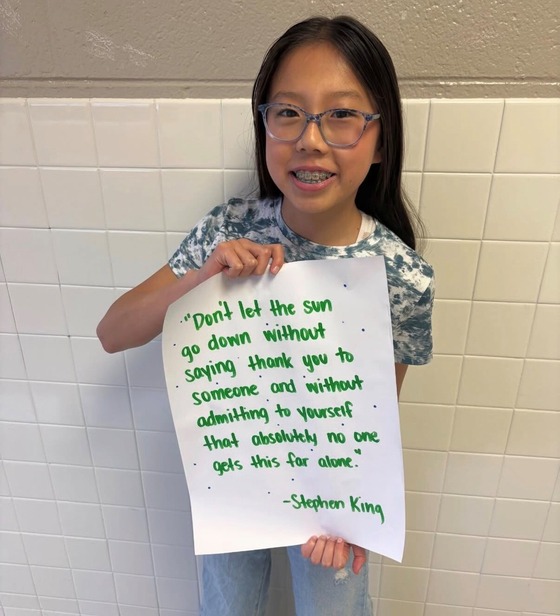 "Don't let the sun
go down without
saying thank you to
someone and without
admitting to yourself
that absolutely no one
gets this far alone."
-Stephen King